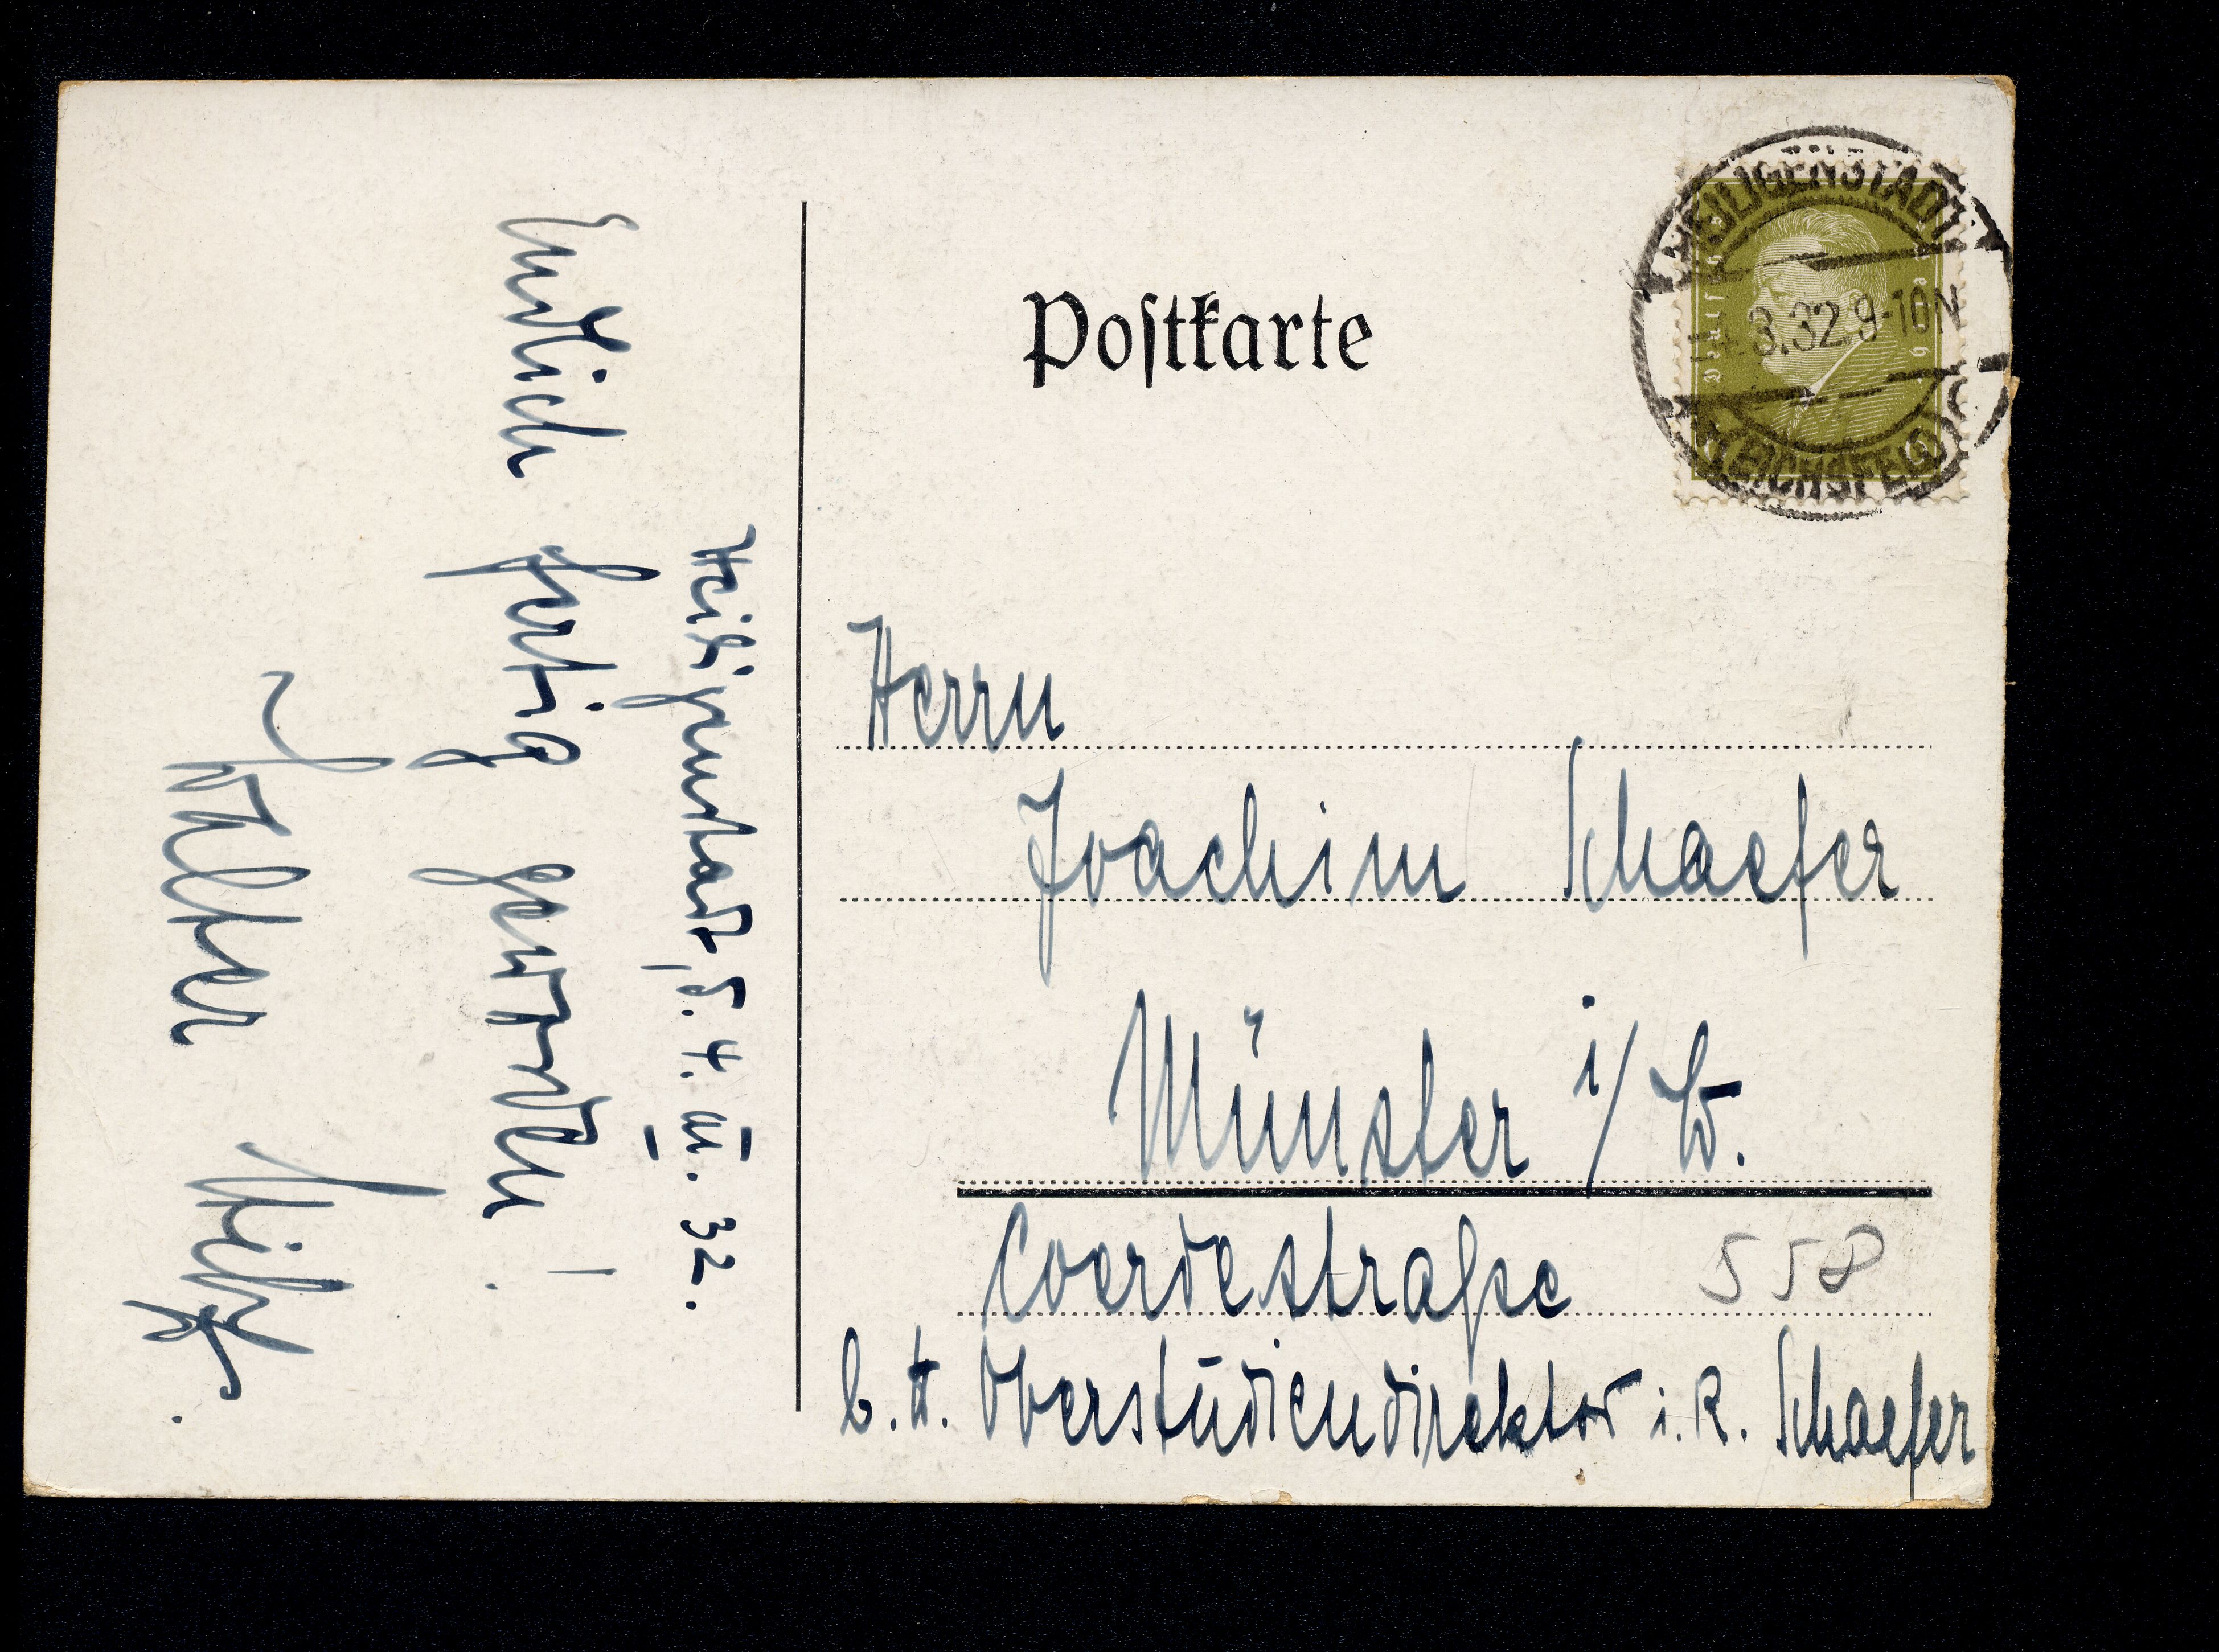 Heiligenstadt, d. 4. III. 32.
Endlich fertig geworden!
Walter
Postkarte
HEILIGENSTADT
4.3.32.9-10N
(EICHSFELD)
Herrn
Joachim Schaefer
Münster i/W.
Coerdestraße 558
b. H. Oberstudiendirektor i. R. Schaefer